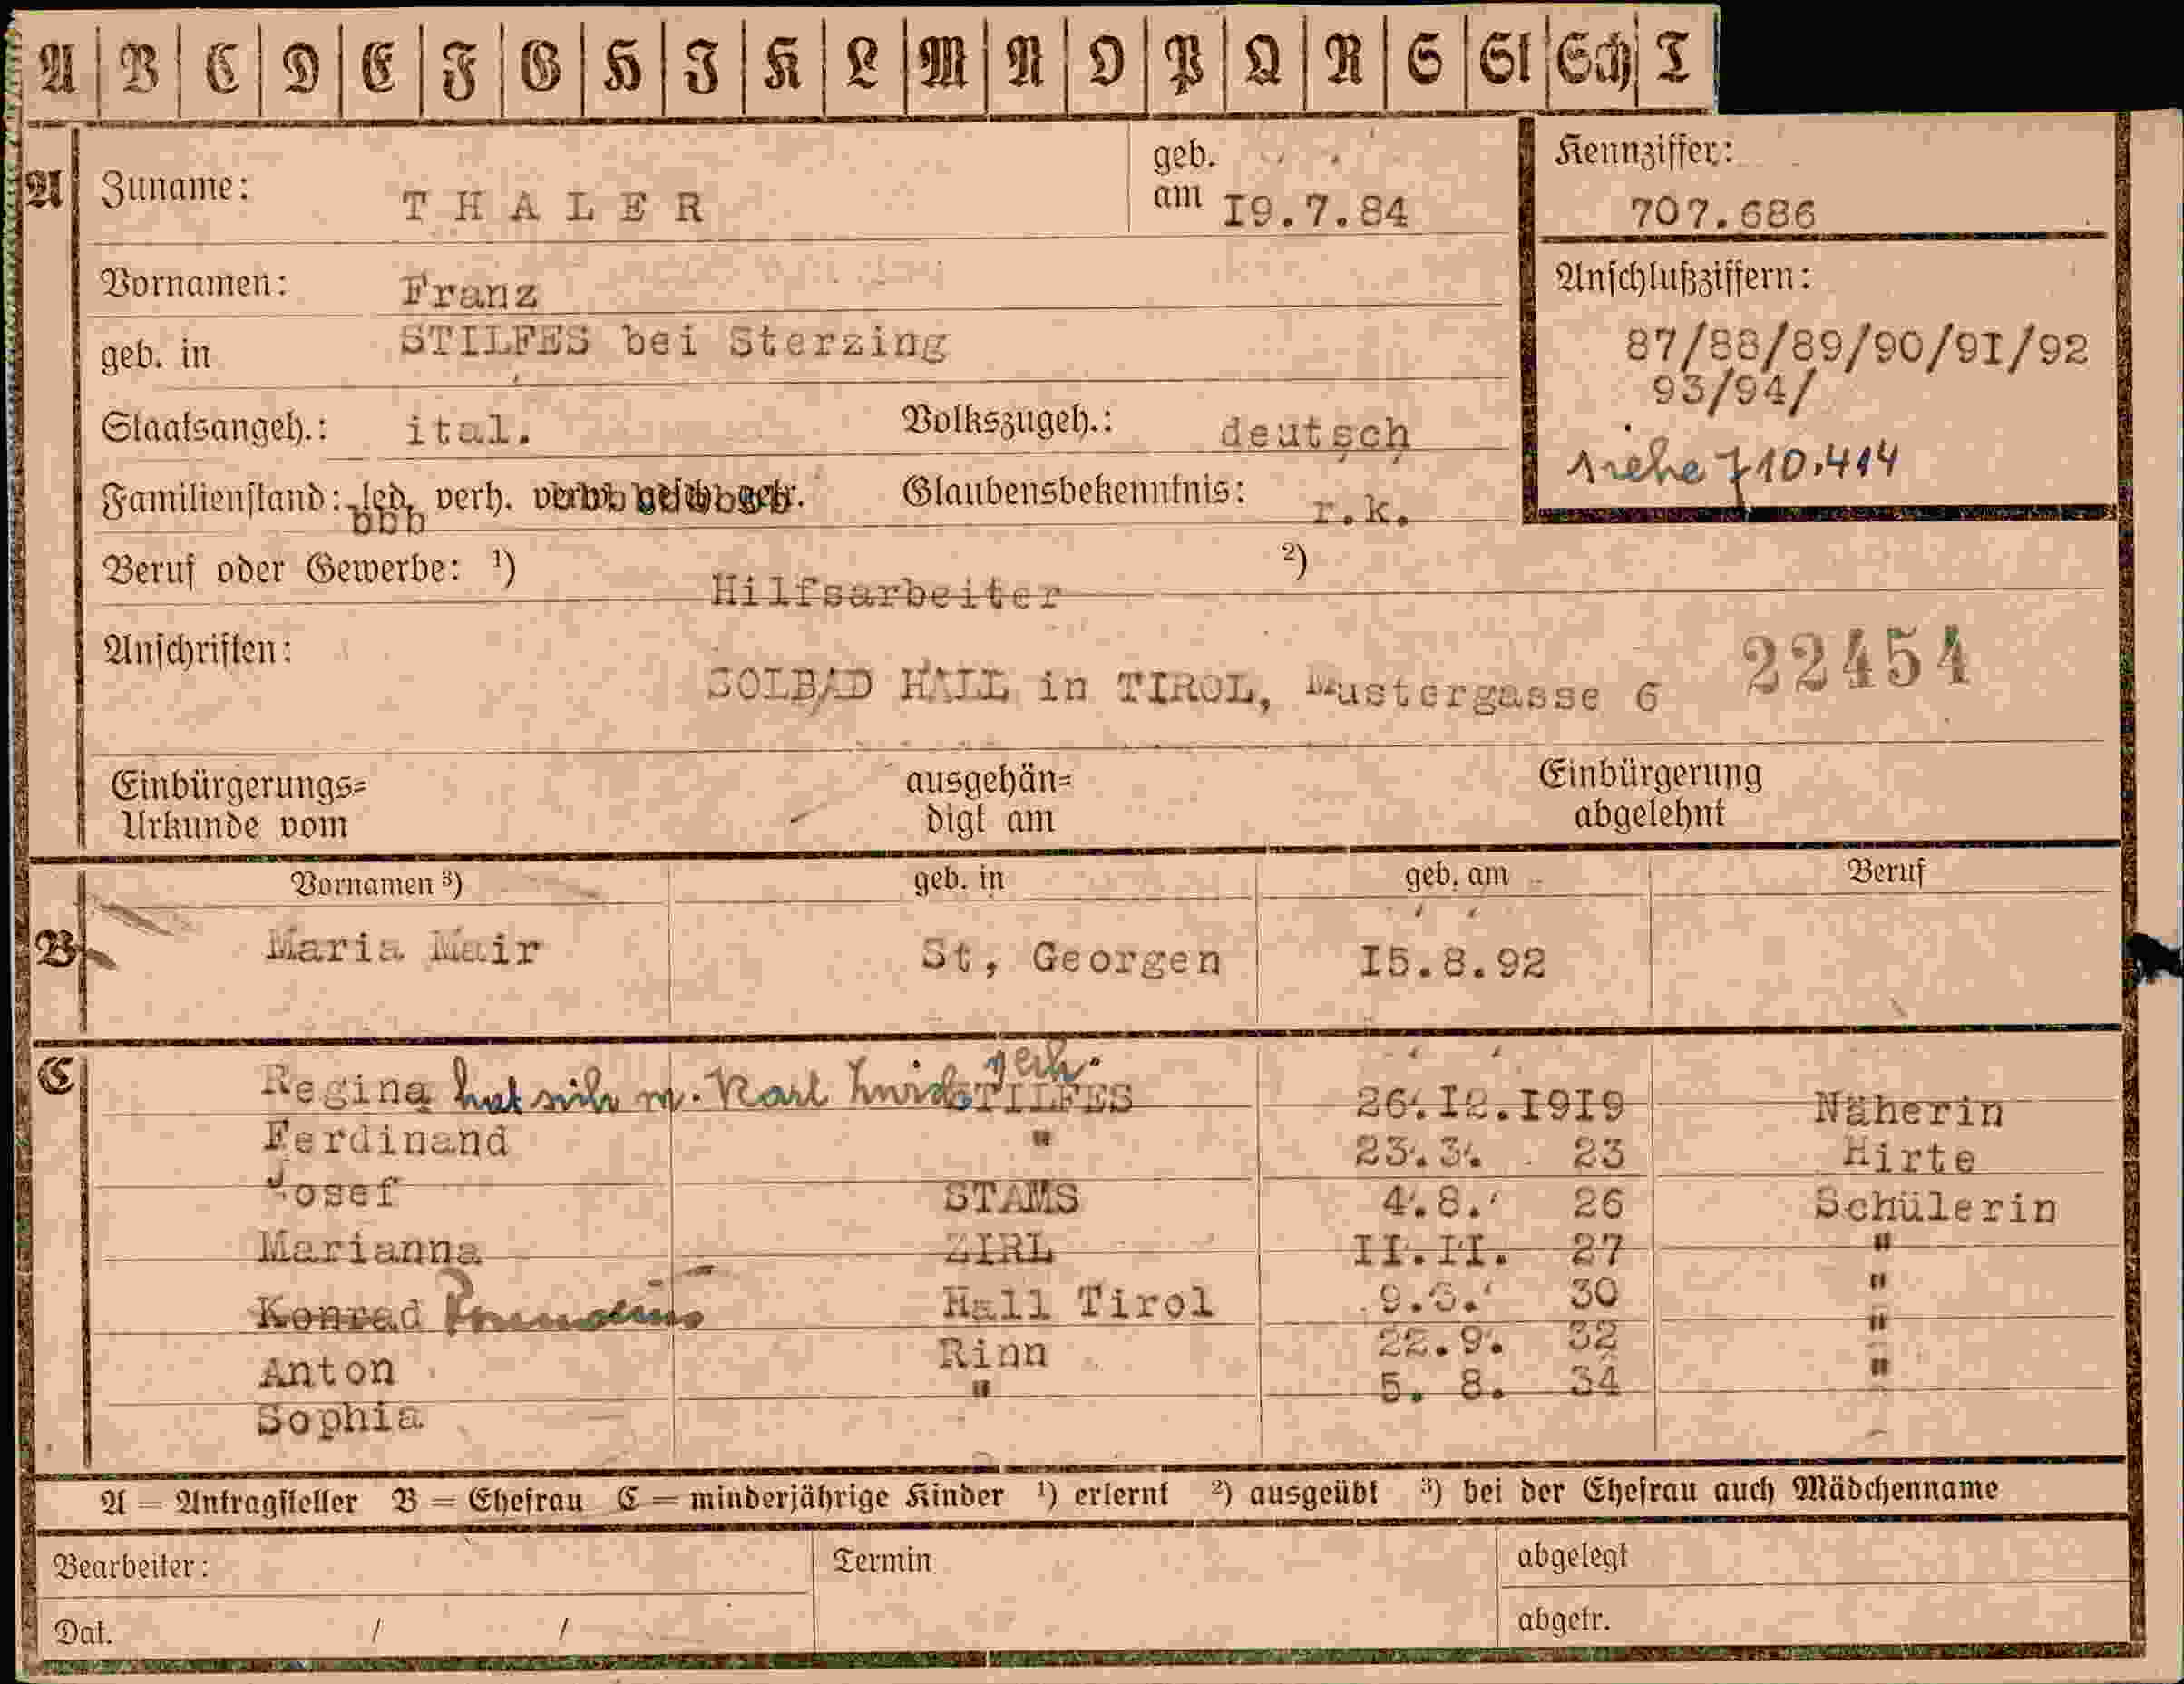 A B C D E F G H I K L M N O P Q R S St Sch T
A Zuname: THALER geb. am I9.7.84 Kennziffer: 707.686
Vornamen: Franz Anschlußziffern:
geb. in STILFES bei Sterzing 87/88/89/90/9I/92
93/94/
Staatsangeh.: ital. Volkszugeh.: deutsch siehe 710.414
Familienstand: led. verh. Glaubensbekenntnis: r.k.
Beruf oder Gewerbe: ¹) Hilfsarbeiter ²)
Anschriften: SOLBAD HALL in TIROL, Mustergasse 6 22454
Einbürgerungs= ausgehän= Einbürgerung
Urkunde vom digt am abgelehnt
Vornamen ³) geb. in geb. am Beruf
B Maria Mair St, Georgen I5.8.92
C Regina hat sich m. Karl verh. STILFES 26.I2.I9I9 Näherin
Ferdinand " 23.3. 23 Hirte
Josef STAMS 4.8. 26 Schülerin
Marianna ZIRL II.II. 27 "
Konrad Hall Tirol 30 "
Anton Rinn 22.9. 32 "
Sophia " 5. 8. 34 "
A = Antragsteller B = Ehefrau C = minderjährige Kinder ¹) erlernt ²) ausgeübt ³) bei der Ehefrau auch Mädchenname
Bearbeiter: Termin abgelegt
Dat. / / abgetr.